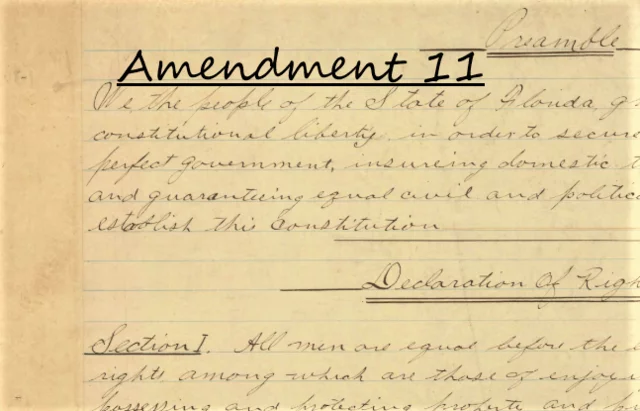 Preamble
Amendment 11
We the people of the State of Florida, g
constitutional liberty, in order to secure
perfect government, insureing domestic
and guaranteeing equal civil and politic
establish this Constitution
Declaration Of Righ
Section I. All men are equal before the
rights among which are those of enjoy
possessing and protecting property, and